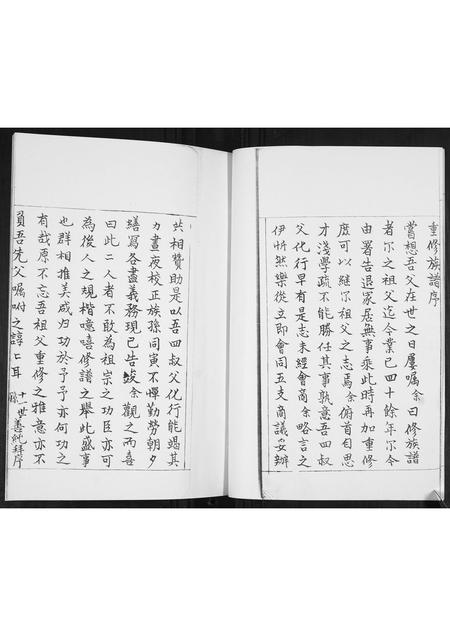 重修族譜序
嘗想吾父在世之日屢嘱余曰修族譜
者尔之祖父迄今業已四十餘年尔今
由署告退家居無事乘此時再加重修
庶可以継尔祖父之志焉余俯首自思
才淺學疏不能勝任其事孰意吾四叔
父化行早有是志未經會商余略言之
伊忻然樂從立即會同五支商議妥辦
共相贊助是以吾四叔父化行能竭其
力晝夜校正族孫同寅不憚勤勞朝夕
繕寫各盡義務現已告竣余觀之而喜
曰此二人者不敢為祖宗之功臣亦可
為後人之規楷噫嘻修譜之舉此盛事
也群相推美咸归功於予予亦何功之
有哉原不忘吾祖父重修之雅意亦不
負吾先父嘱咐之諄諄耳 十一世善